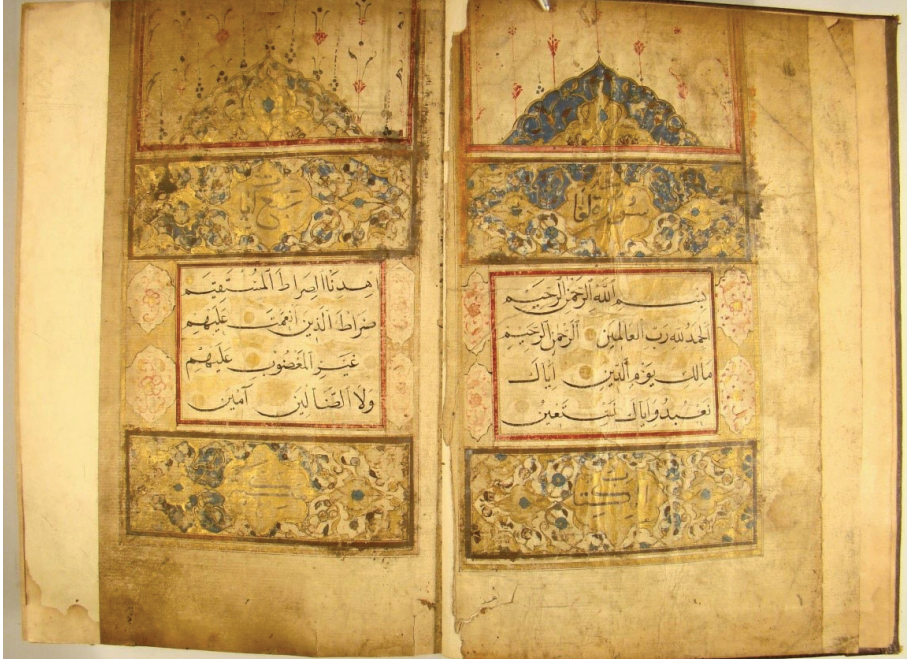 سورة
بسم الله الرحمن الرحيم
الحمد لله رب العالمين الرحمن الرحيم
مالك يوم الدين اياك
نعبد واياك نستعين
هدنا الصراط المستقيم
صراط الذين انعمت عليهم
غير المغضوب عليهم
ولا الضالين آمين